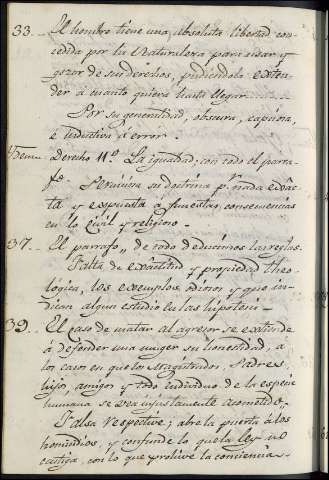 33. El hombre tiene una absoluta libertad con-
cedida por la Naturaleza para usar y
gozar de sus derechos, pudiendola exten-
der á cuanto quiera hasta llegar
Por su generalidad, obscura, capciosa,
é inductiva á error.
Derecho 11.º La igualdad, con todo el parra-
fo.
Perniciosa su doctrina p.r nada exâc-
ta y expuesta á funestas consecuencias
en lo Civil y religioso.
37. El parrafo,, de todo deducimos las reglas.
Falta de exâctitud y propiedad Theo-
lógica, los exemplos, odiosos y que in-
dican algun estudio en las hipótesis.
39. El caso de matar al agresor se extiende
á defender una muger su honestidad, á
los casos en que los Magistrados, Padres
hijos, amigos y todo individuo de la especie
humana se vea injustamente acometido,,
Falsa respective; abre la puerta á los
homicidios, y confunde lo que la ley no
castiga, con lo que prohive la conciencia.